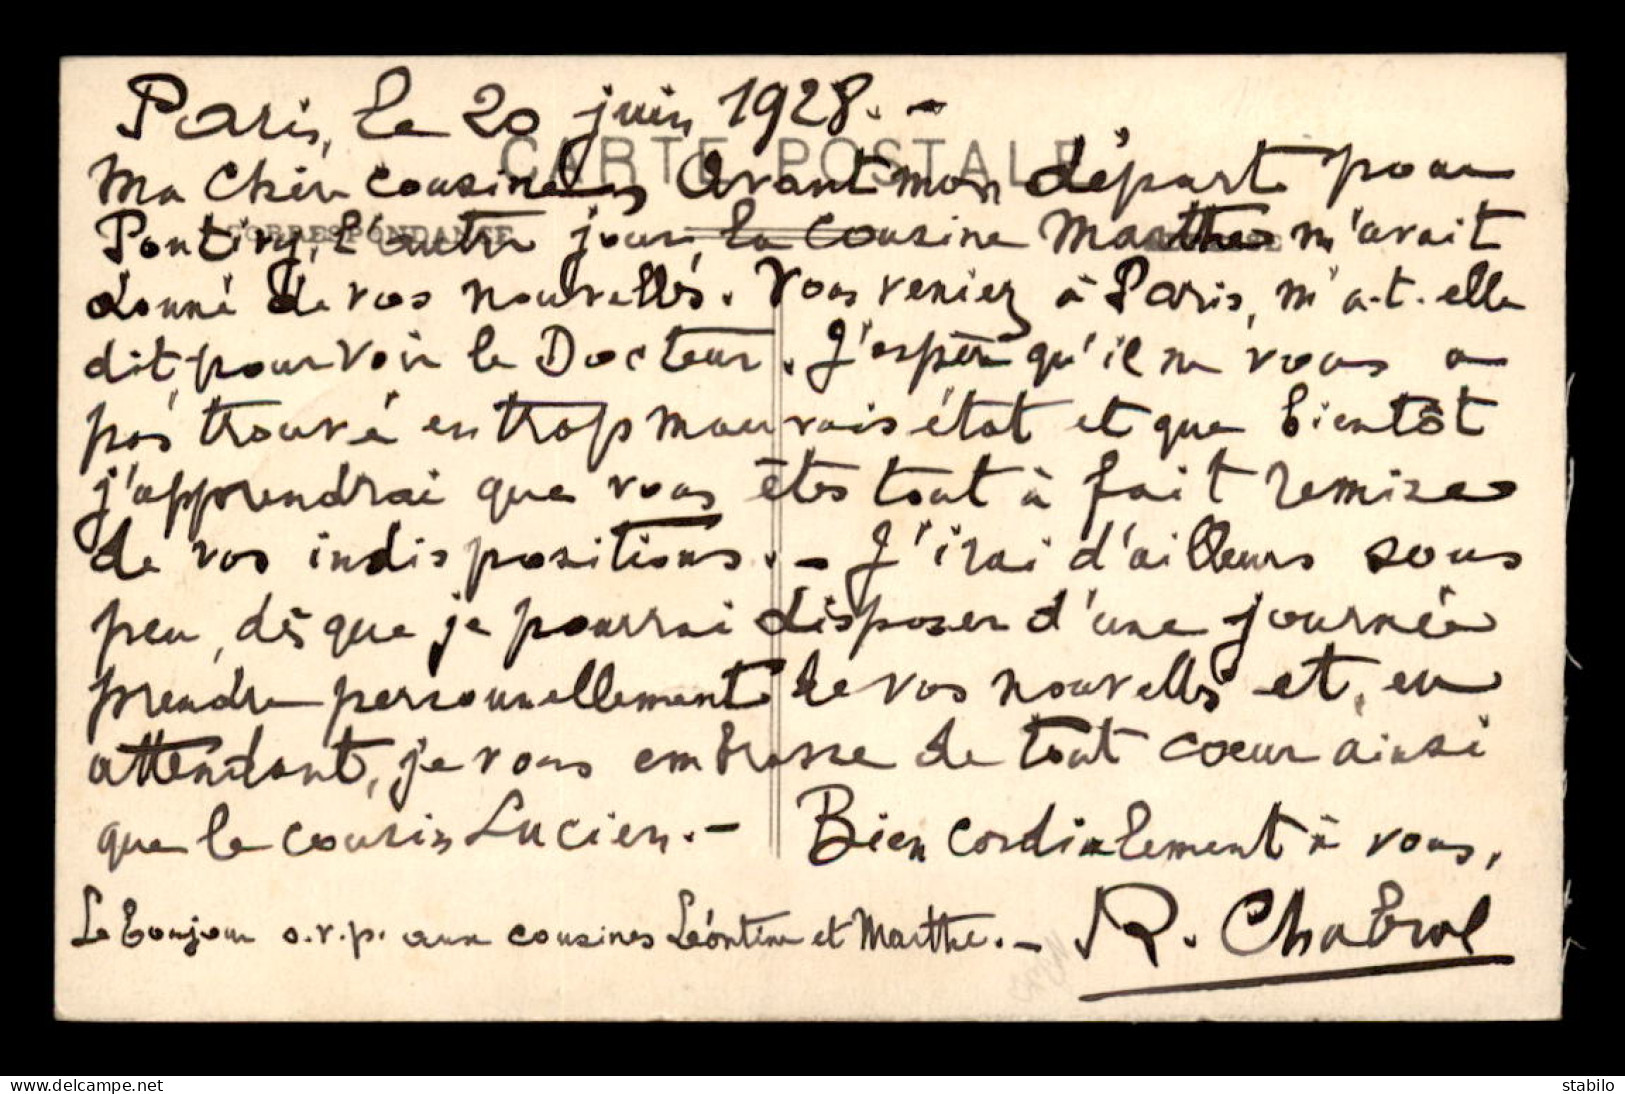 Paris, le 20 juin 1928. -
CARTE POSTALE
Ma chère cousine, Avant mon départ pour
CORRESPONDANCE
Pontivy, l'autre jour, la cousine Marthe m'avait
donné de vos nouvelles. Vous veniez à Paris, m'a-t-elle
dit, pour voir le Docteur. J'espère qu'il ne vous a
pas trouvé en trop mauvais état et que bientôt
j'apprendrai que vous êtes tout à fait remise
de vos indispositions. - J'irai d'ailleurs sous
peu, dès que je pourrai disposer d'une journée
prendre personnellement de vos nouvelles et, en
attendant, je vous embrasse de tout cœur ainsi
que le cousin Lucien. - Bien cordialement à vous,
Le bonjour s.v.p. aux cousines Léontine et Marthe. - R. Chabrol
www.delcampe.net
stabilo